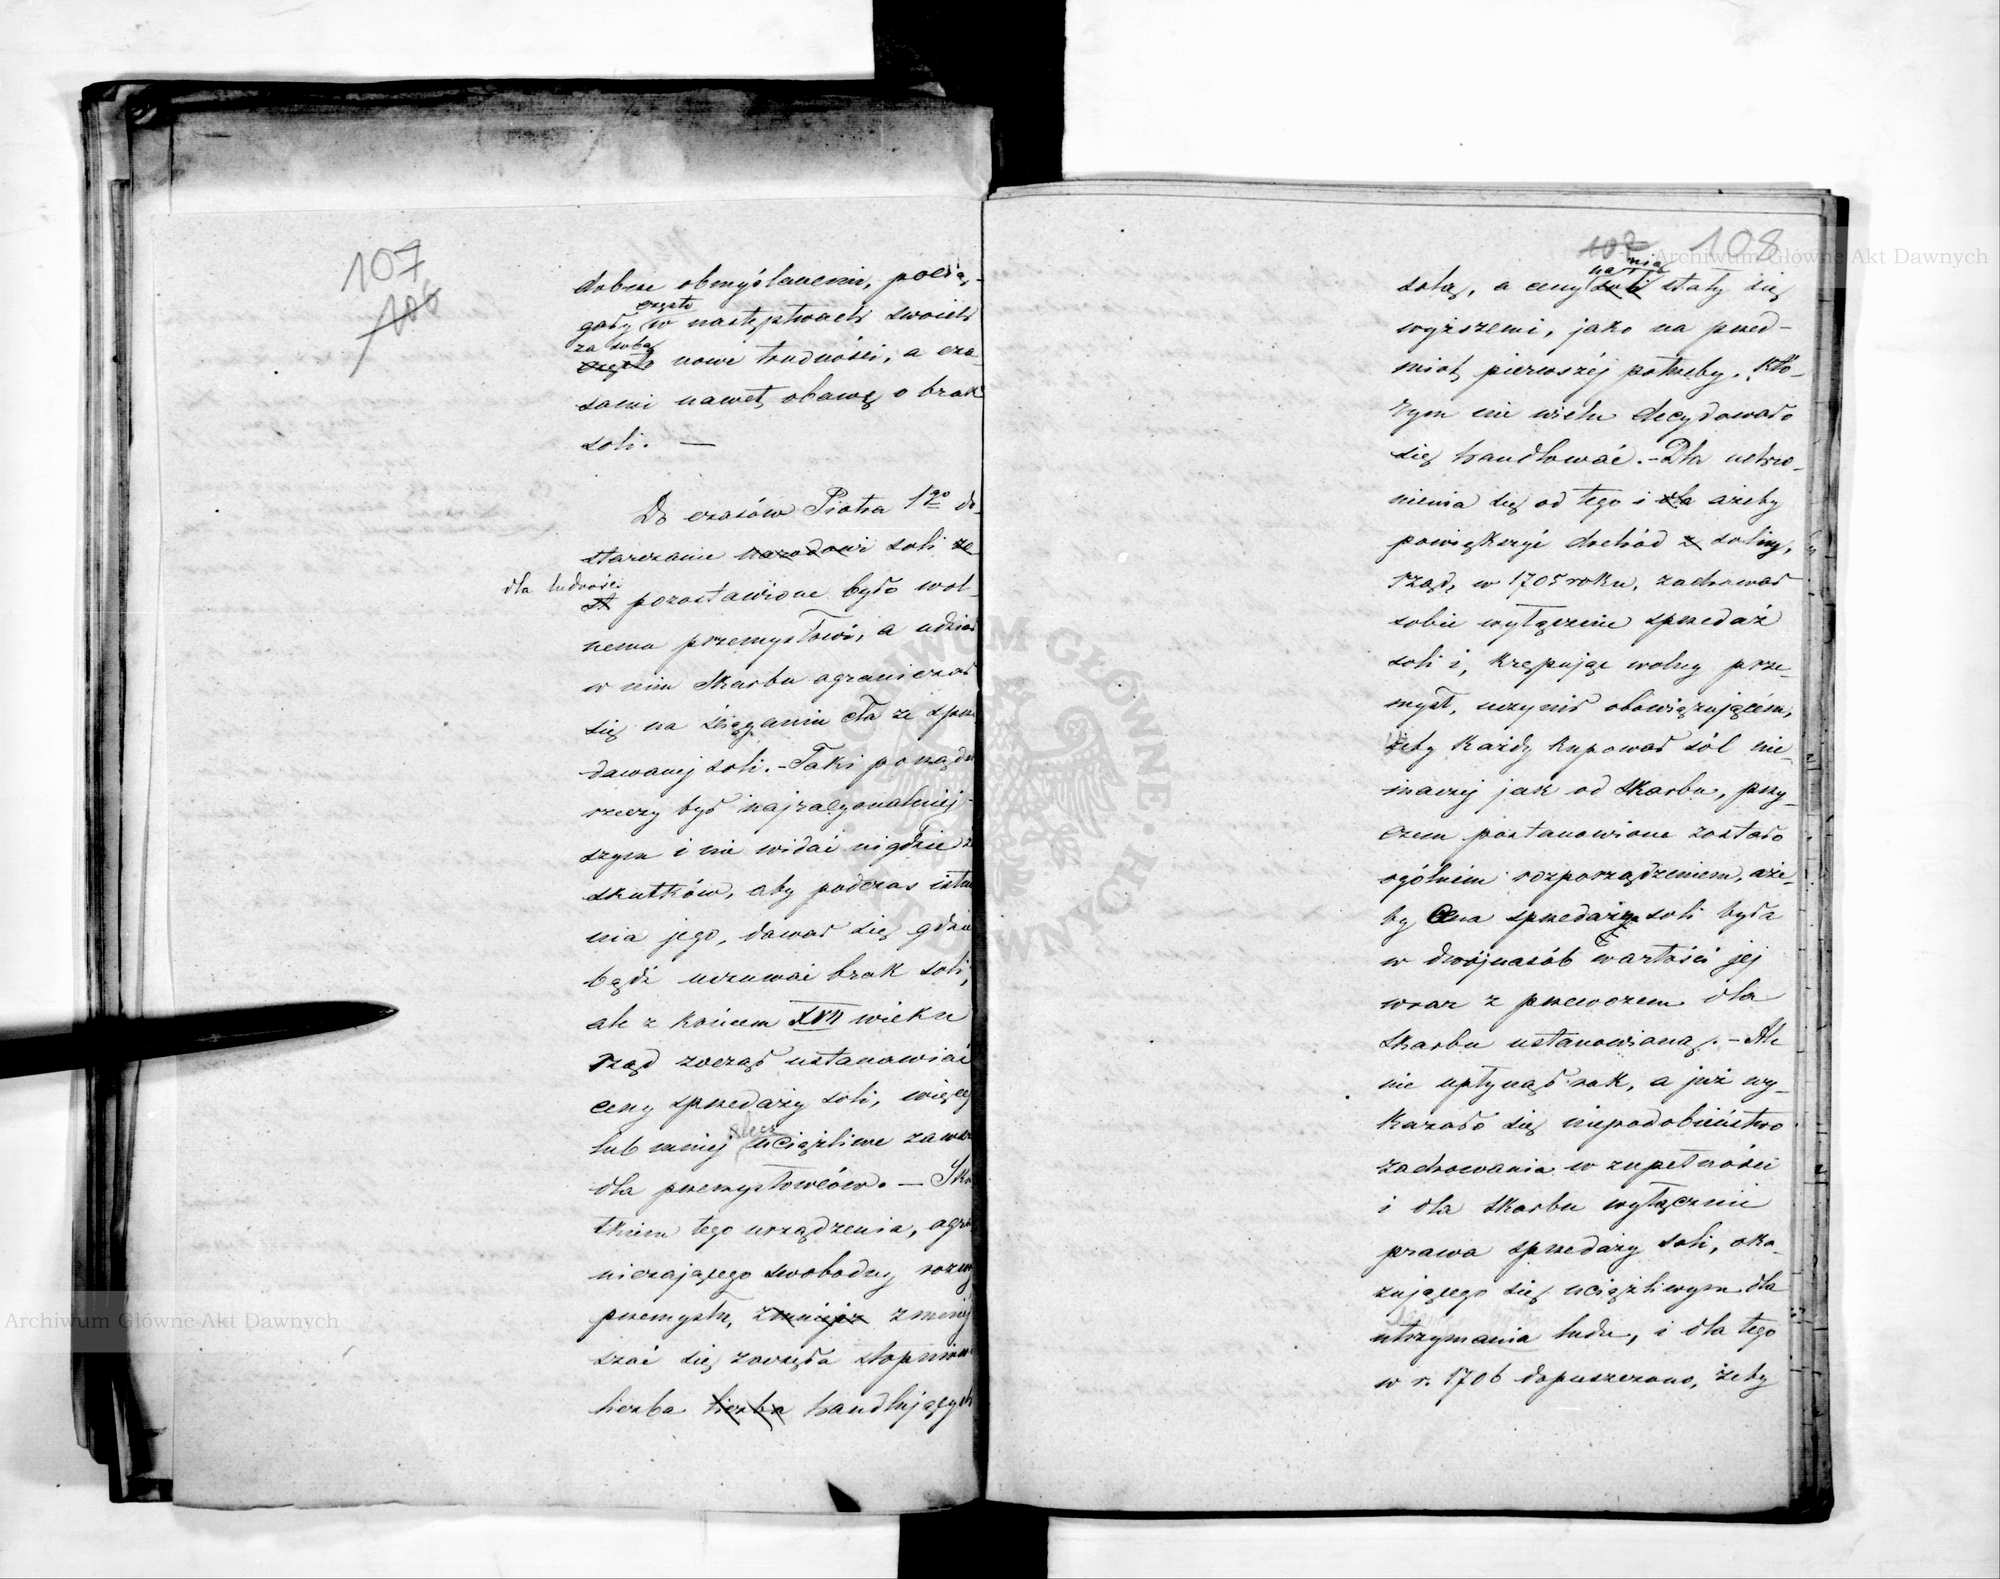 107
106
dobrze obmyślanemi, pocią-
gały często w następstwach swoich
za sobą często nowe trudności, a cza-
sami nawet, obawę o brak
soli. —
Do czasów Piotra 1go do-
starczanie narodowi soli ze
dla ludności pozostawione było wol-
nemu przemysłowi, a udział
w nim Skarbu ograniczał
się na ściąganiu cła ze sprze
dawanej soli. - Taki porządek
rzeczy był najracyonalniej-
szym i nie widać nigdzie z
skutków, aby podczas istnie
nia jego, dawał się gdzie
bądź uczuwać brak soli,
ale z końcem XVII wieku
rząd zaczął ustanawiać
ceny sprzedaży soli, więcej
lub mniej lecz uciążliwe zawsze
dla przemysłowców. — Sku
tkiem tego urządzenia, ogra
niczającego swobodny rozwój
przemysłu, zmniejsz zmniej
szać się zaczęła stopniowo
liczba liczba handlujących
107 108
solą, a ceny soli na nią stały się
wyższemi, jako na przed-
miot, pierwszéj potrzeby, któ-
rym nie wielu decydowało
się handlować. - Dla uchro-
nienia się od tego i dla ażeby
powiększyć dochód z soliny,
rząd, w 1705 roku, zachował
sobie wyłącznie sprzedaż
soli i, krępując wolny prze-
mysł, uczynił obowiązującém,
żeby każdy kupował sól nie
inaczej jak od skarbu, przy-
czem postanowione zostało
ogólnem rozporządzeniem, aże-
by cena sprzedażna soli była
w dwójnasób wartości jej
wraz z przewozem dla
skarbu ustanowioną. - Ale
nie upłynął rok, a już wy-
kazało się niepodobieństwo
zachowania w zupełności
i dla skarbu wyłącznie
prawa sprzedaży soli, oka-
zującego się uciążliwym dla
utrzymania ludu, i dla tego
w r. 1706 dopuszczono, żeby
Archiwum Główne Akt Dawnych
Archiwum Główne Akt Dawnych
ARCHIWUM GŁÓWNE AKT DAWNYCH